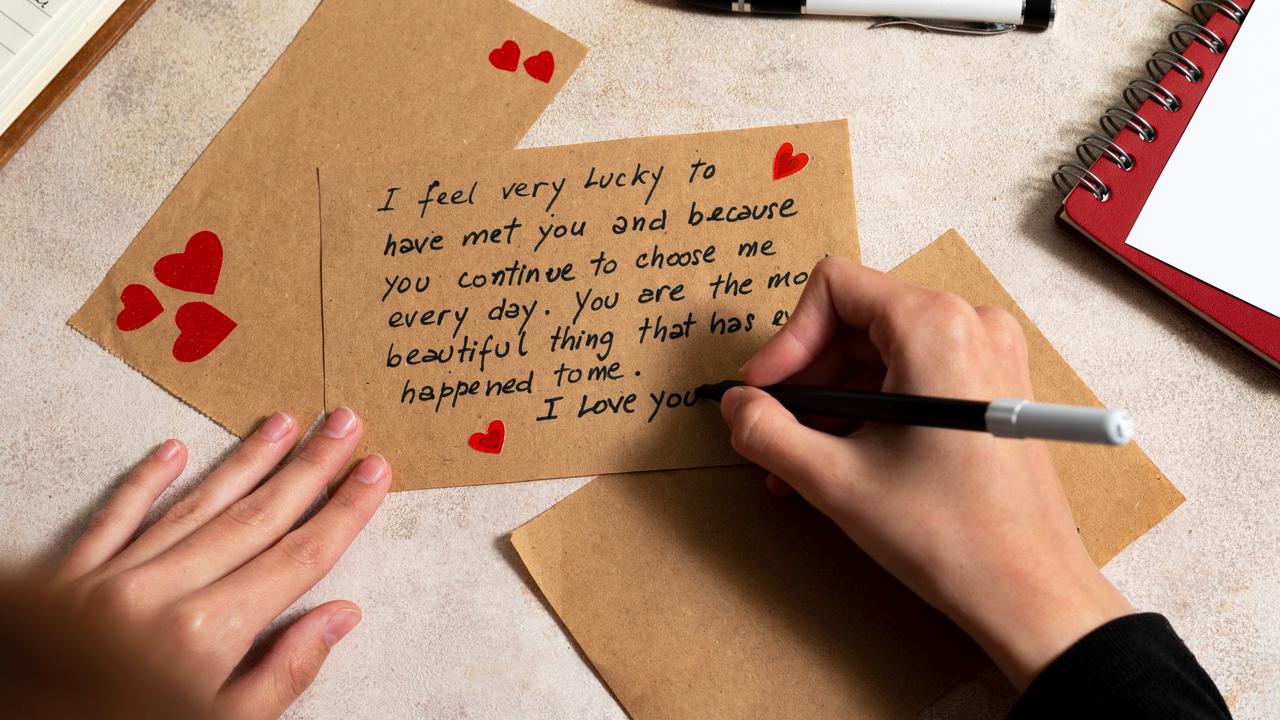 I feel very Lucky to
have met you and because
you continue to choose me
every day. You are the mo
beautiful thing that has ev
happened to me.
I Love you